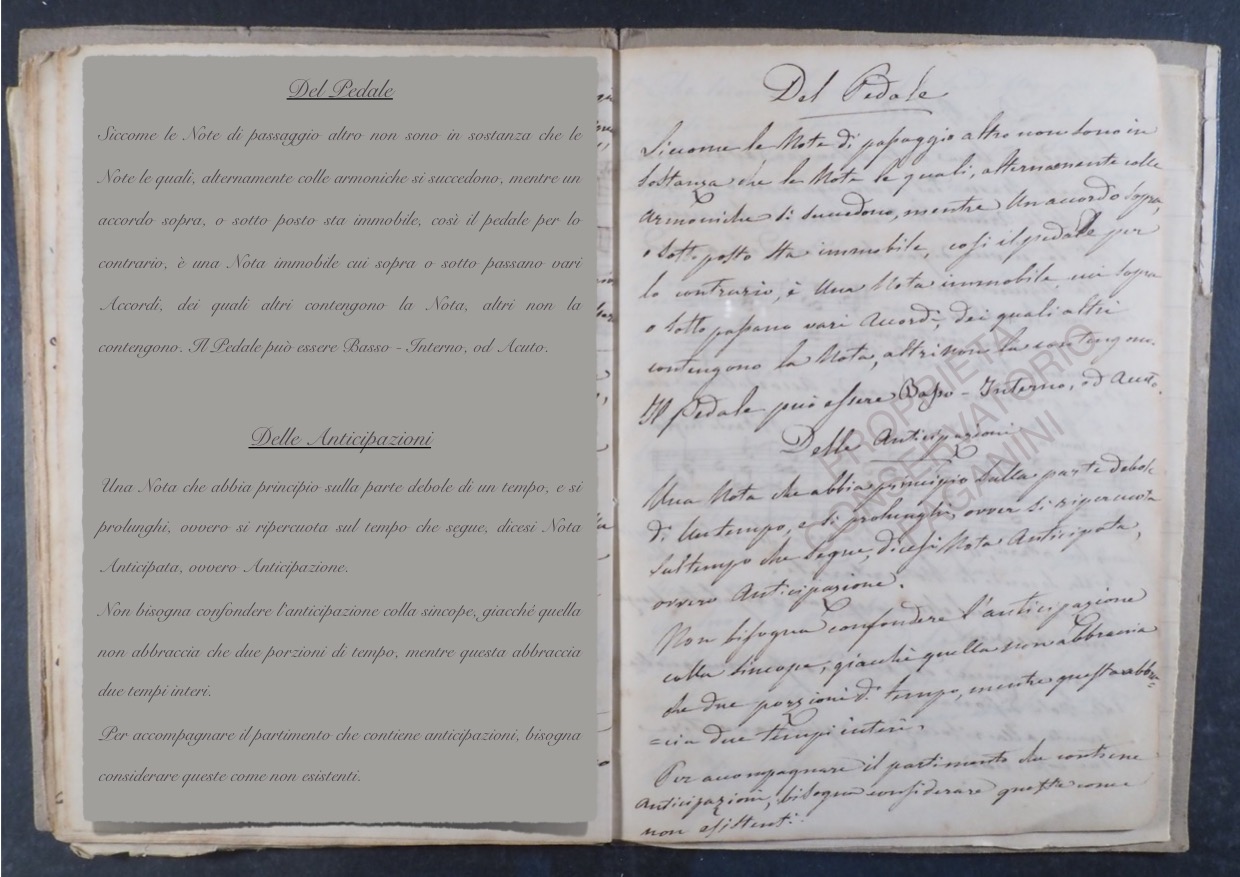 Del Pedale
Siccome le Note di passaggio altro non sono in sostanza che le
Note le quali, alternamente colle armoniche si succedono, mentre un
accordo sopra, o sotto posto sta immobile, così il pedale per lo
contrario, è una Nota immobile cui sopra o sotto passano vari
Accordi, dei quali altri contengono la Nota, altri non la
contengono. Il Pedale può essere Basso - Interno, od Acuto.
Delle Anticipazioni
Una Nota che abbia principio sulla parte debole di un tempo, e si
prolunghi, ovvero si ripercuota sul tempo che segue, dicesi Nota
Anticipata, ovvero Anticipazione.
Non bisogna confondere l'anticipazione colla sincope, giacché quella
non abbraccia che due porzioni di tempo, mentre questa abbraccia
due tempi interi.
Per accompagnare il partimento che contiene anticipazioni, bisogna
considerare queste come non esistenti.
Del Pedale
Siccome le Note di passaggio altro non sono in
sostanza che le Note le quali, alternamente colle
armoniche si succedono, mentre Un accordo sopra,
o sotto posto sta immobile, così il pedale per
lo contrario, è Una Nota immobile cui sopra
o sotto passano vari Accordi, dei quali altri
contengono la Nota, altri non la contengono.
Il Pedale può essere Basso - Interno, od Acuto.
Delle Anticipazioni
Una Nota che abbia principio sulla parte debole
di Un tempo, e si prolunghi, ovver si ripercuota
sul tempo che segue, dicesi Nota Anticipata,
ovvero Anticipazione.
Non bisogna confondere l'anticipazione
colla sincope, giacchè quella non abbraccia
che due porzioni di tempo, mentre questa abbra=
=cia due tempi interi.
Per accompagnare il partimento che contiene
anticipazioni, bisogna considerare queste come
non esistenti.
PROPRIETÀ
CONSERVATORIO
PAGANINI